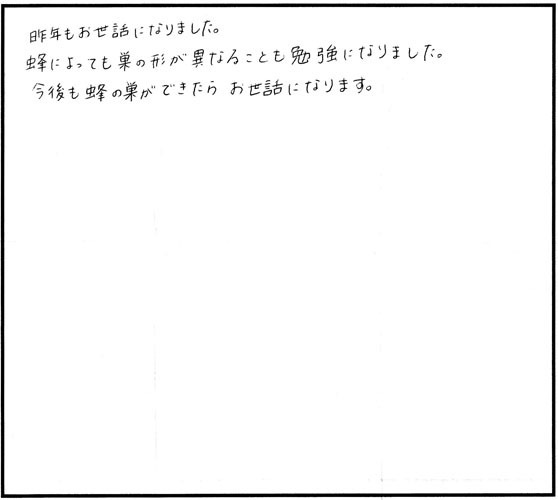 昨年もお世話になりました。
蜂によっても巣の形が異なることも勉強になりました。
今後も蜂の巣ができたら お世話になります。